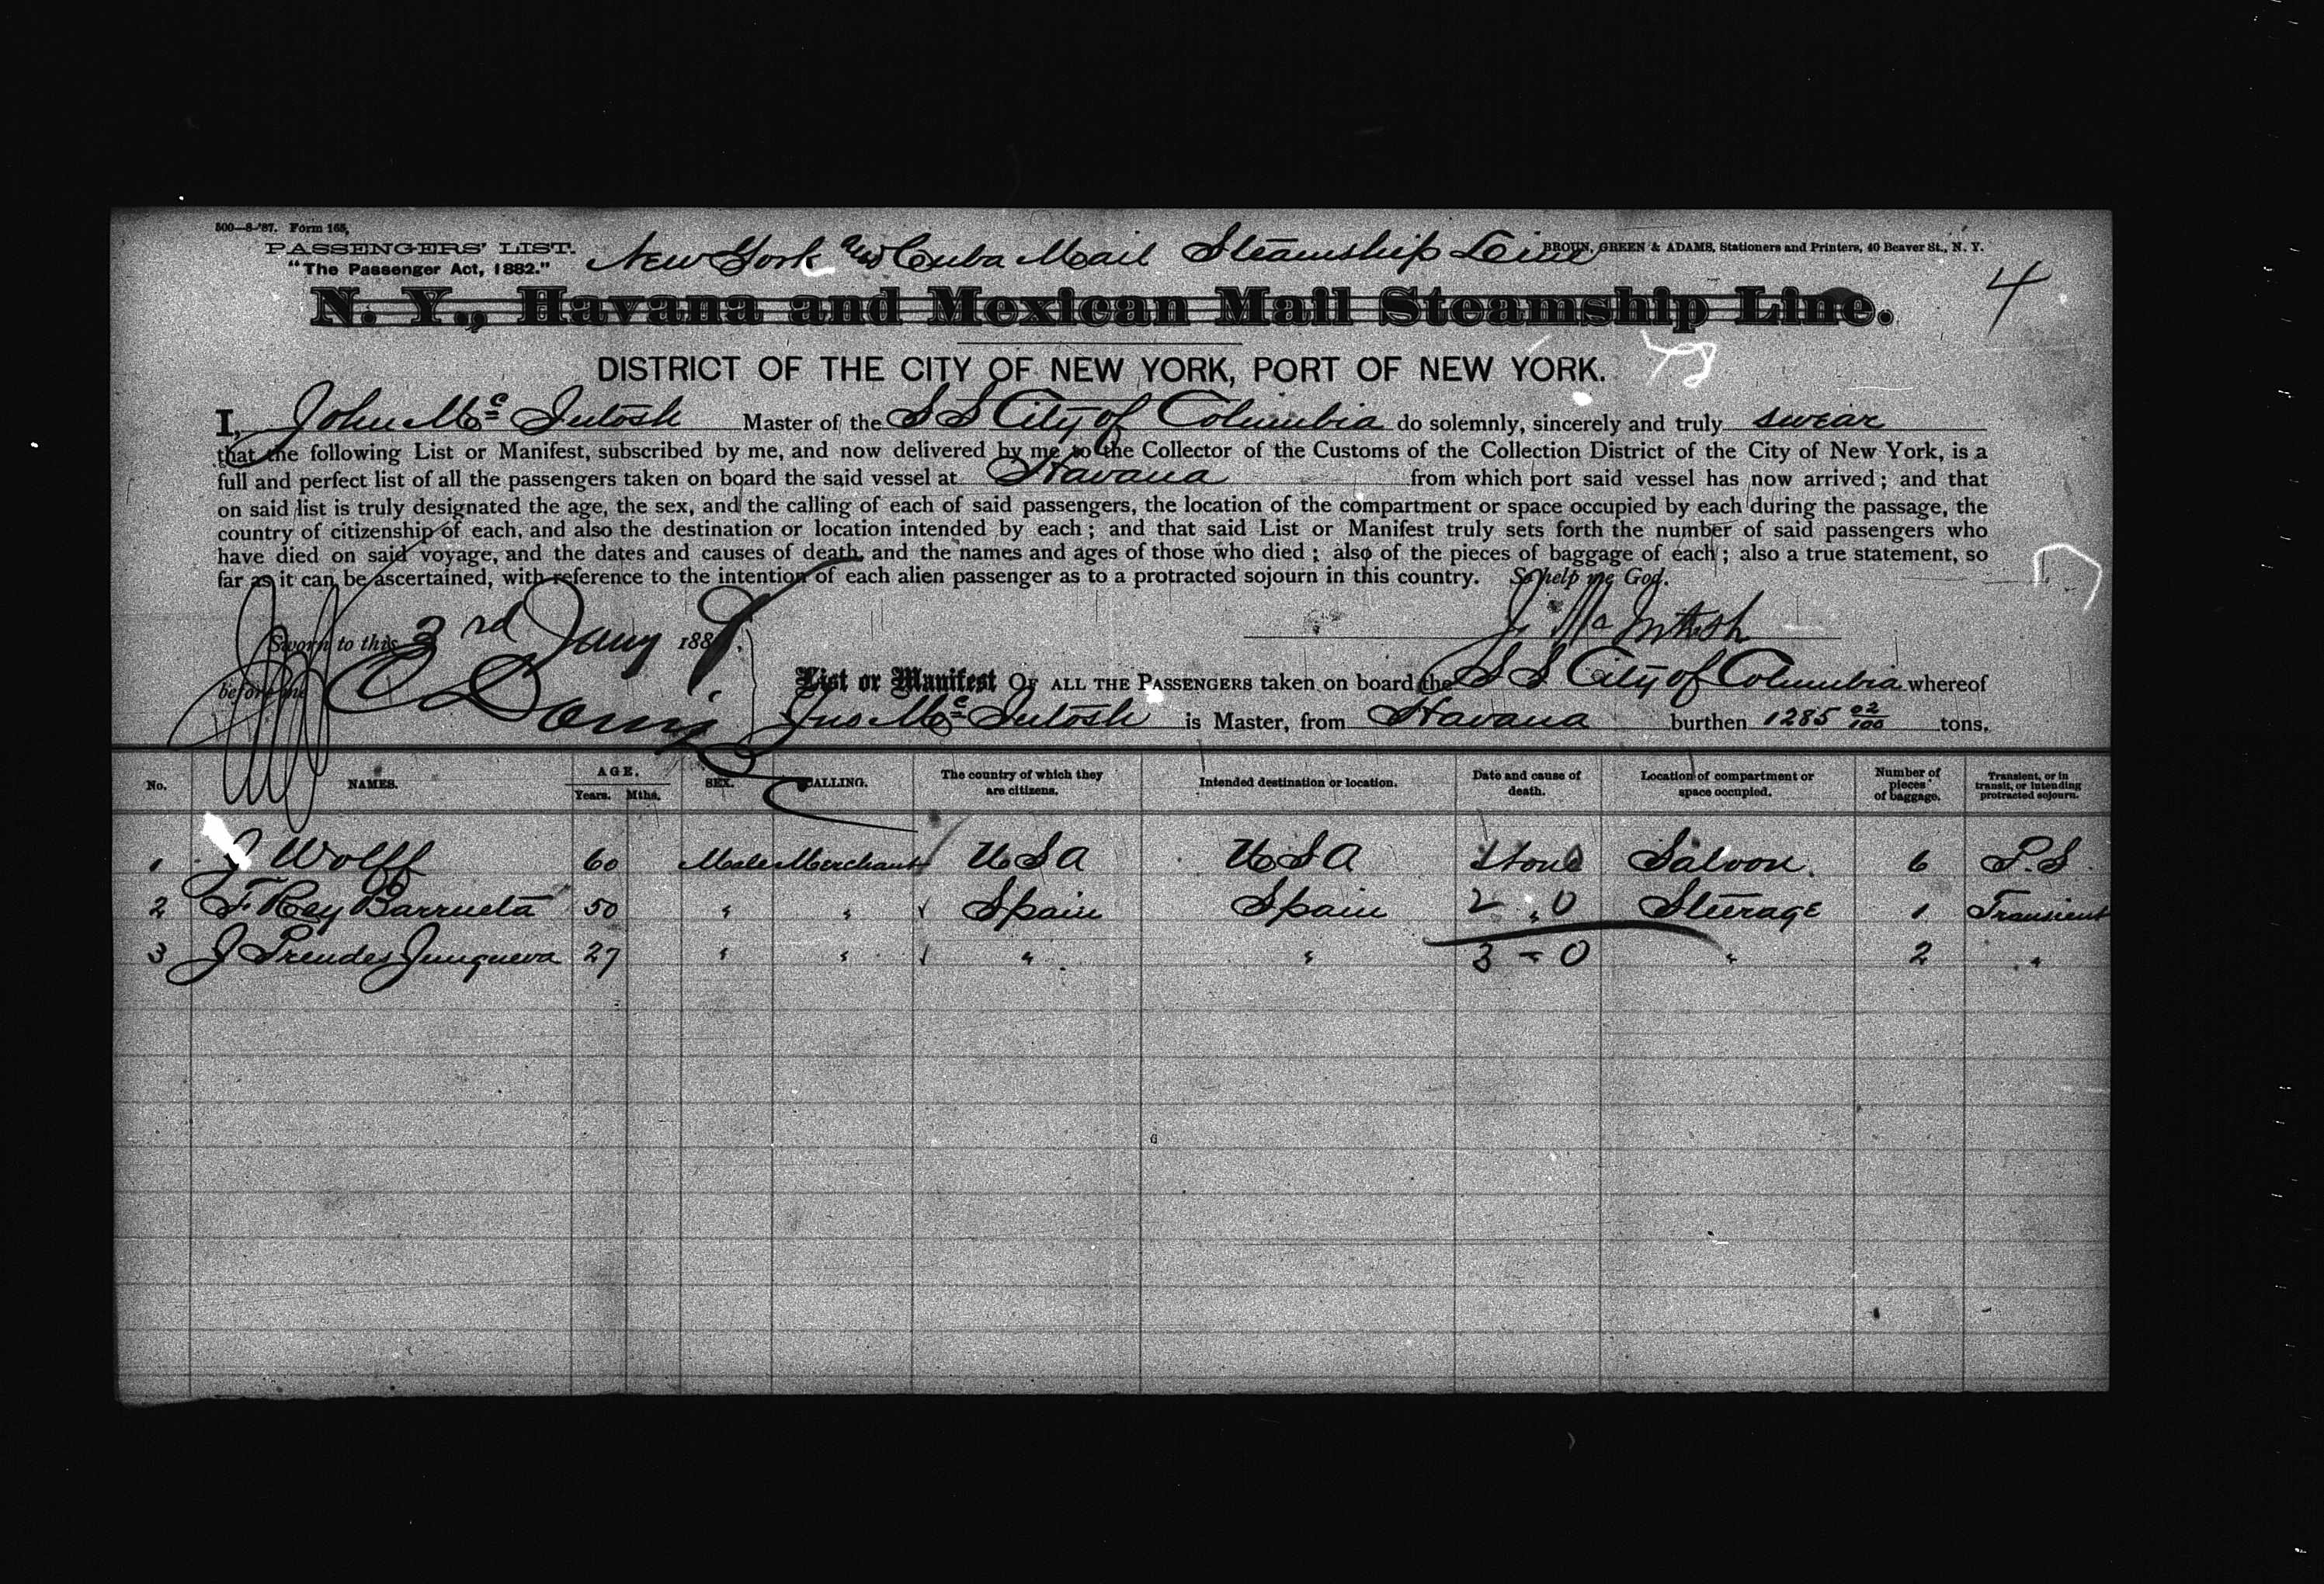 500—8-'87. Form 165,
PASSENGERS' LIST.
"The Passenger Act, 1882."
New York and Cuba Mail Steamship Line
BROUN, GREEN & ADAMS, Stationers and Printers, 40 Beaver St., N. Y.
4
N. Y., Havana and Mexican Mail Steamship Line.
DISTRICT OF THE CITY OF NEW YORK, PORT OF NEW YORK.
78
I, John Mc Intosh Master of the S S City of Columbia do solemnly, sincerely and truly swear
that the following List or Manifest, subscribed by me, and now delivered by me to the Collector of the Customs of the Collection District of the City of New York, is a
full and perfect list of all the passengers taken on board the said vessel at Havana from which port said vessel has now arrived; and that
on said list is truly designated the age, the sex, and the calling of each of said passengers, the location of the compartment or space occupied by each during the passage, the
country of citizenship of each, and also the destination or location intended by each; and that said List or Manifest truly sets forth the number of said passengers who
have died on said voyage, and the dates and causes of death, and the names and ages of those who died; also of the pieces of baggage of each; also a true statement, so
far as it can be ascertained, with reference to the intention of each alien passenger as to a protracted sojourn in this country. So help me God.
Sworn to this 3rd Jany 188
J. McIntosh
before me
List or Manifest OF ALL THE PASSENGERS taken on board the S S City of Columbia whereof
Jno Mc Intosh is Master, from Havana burthen 1285 02/100 tons.
No. NAMES. AGE. Years. Mths. SEX. CALLING. The country of which they are citizens. Intended destination or location. Date and cause of death. Location of compartment or space occupied. Number of pieces of baggage. Transient, or in transit, or intending protracted sojourn.
1 J Wolff 60 Male Merchant USA USA Saloon 6 P.S
2 F Rey Barrueta 50 " " Spain Spain 2 " 0 Steerage 1 Transient
3 J Prendes Junqueva 27 " " " " 3 - 0 " 2 "